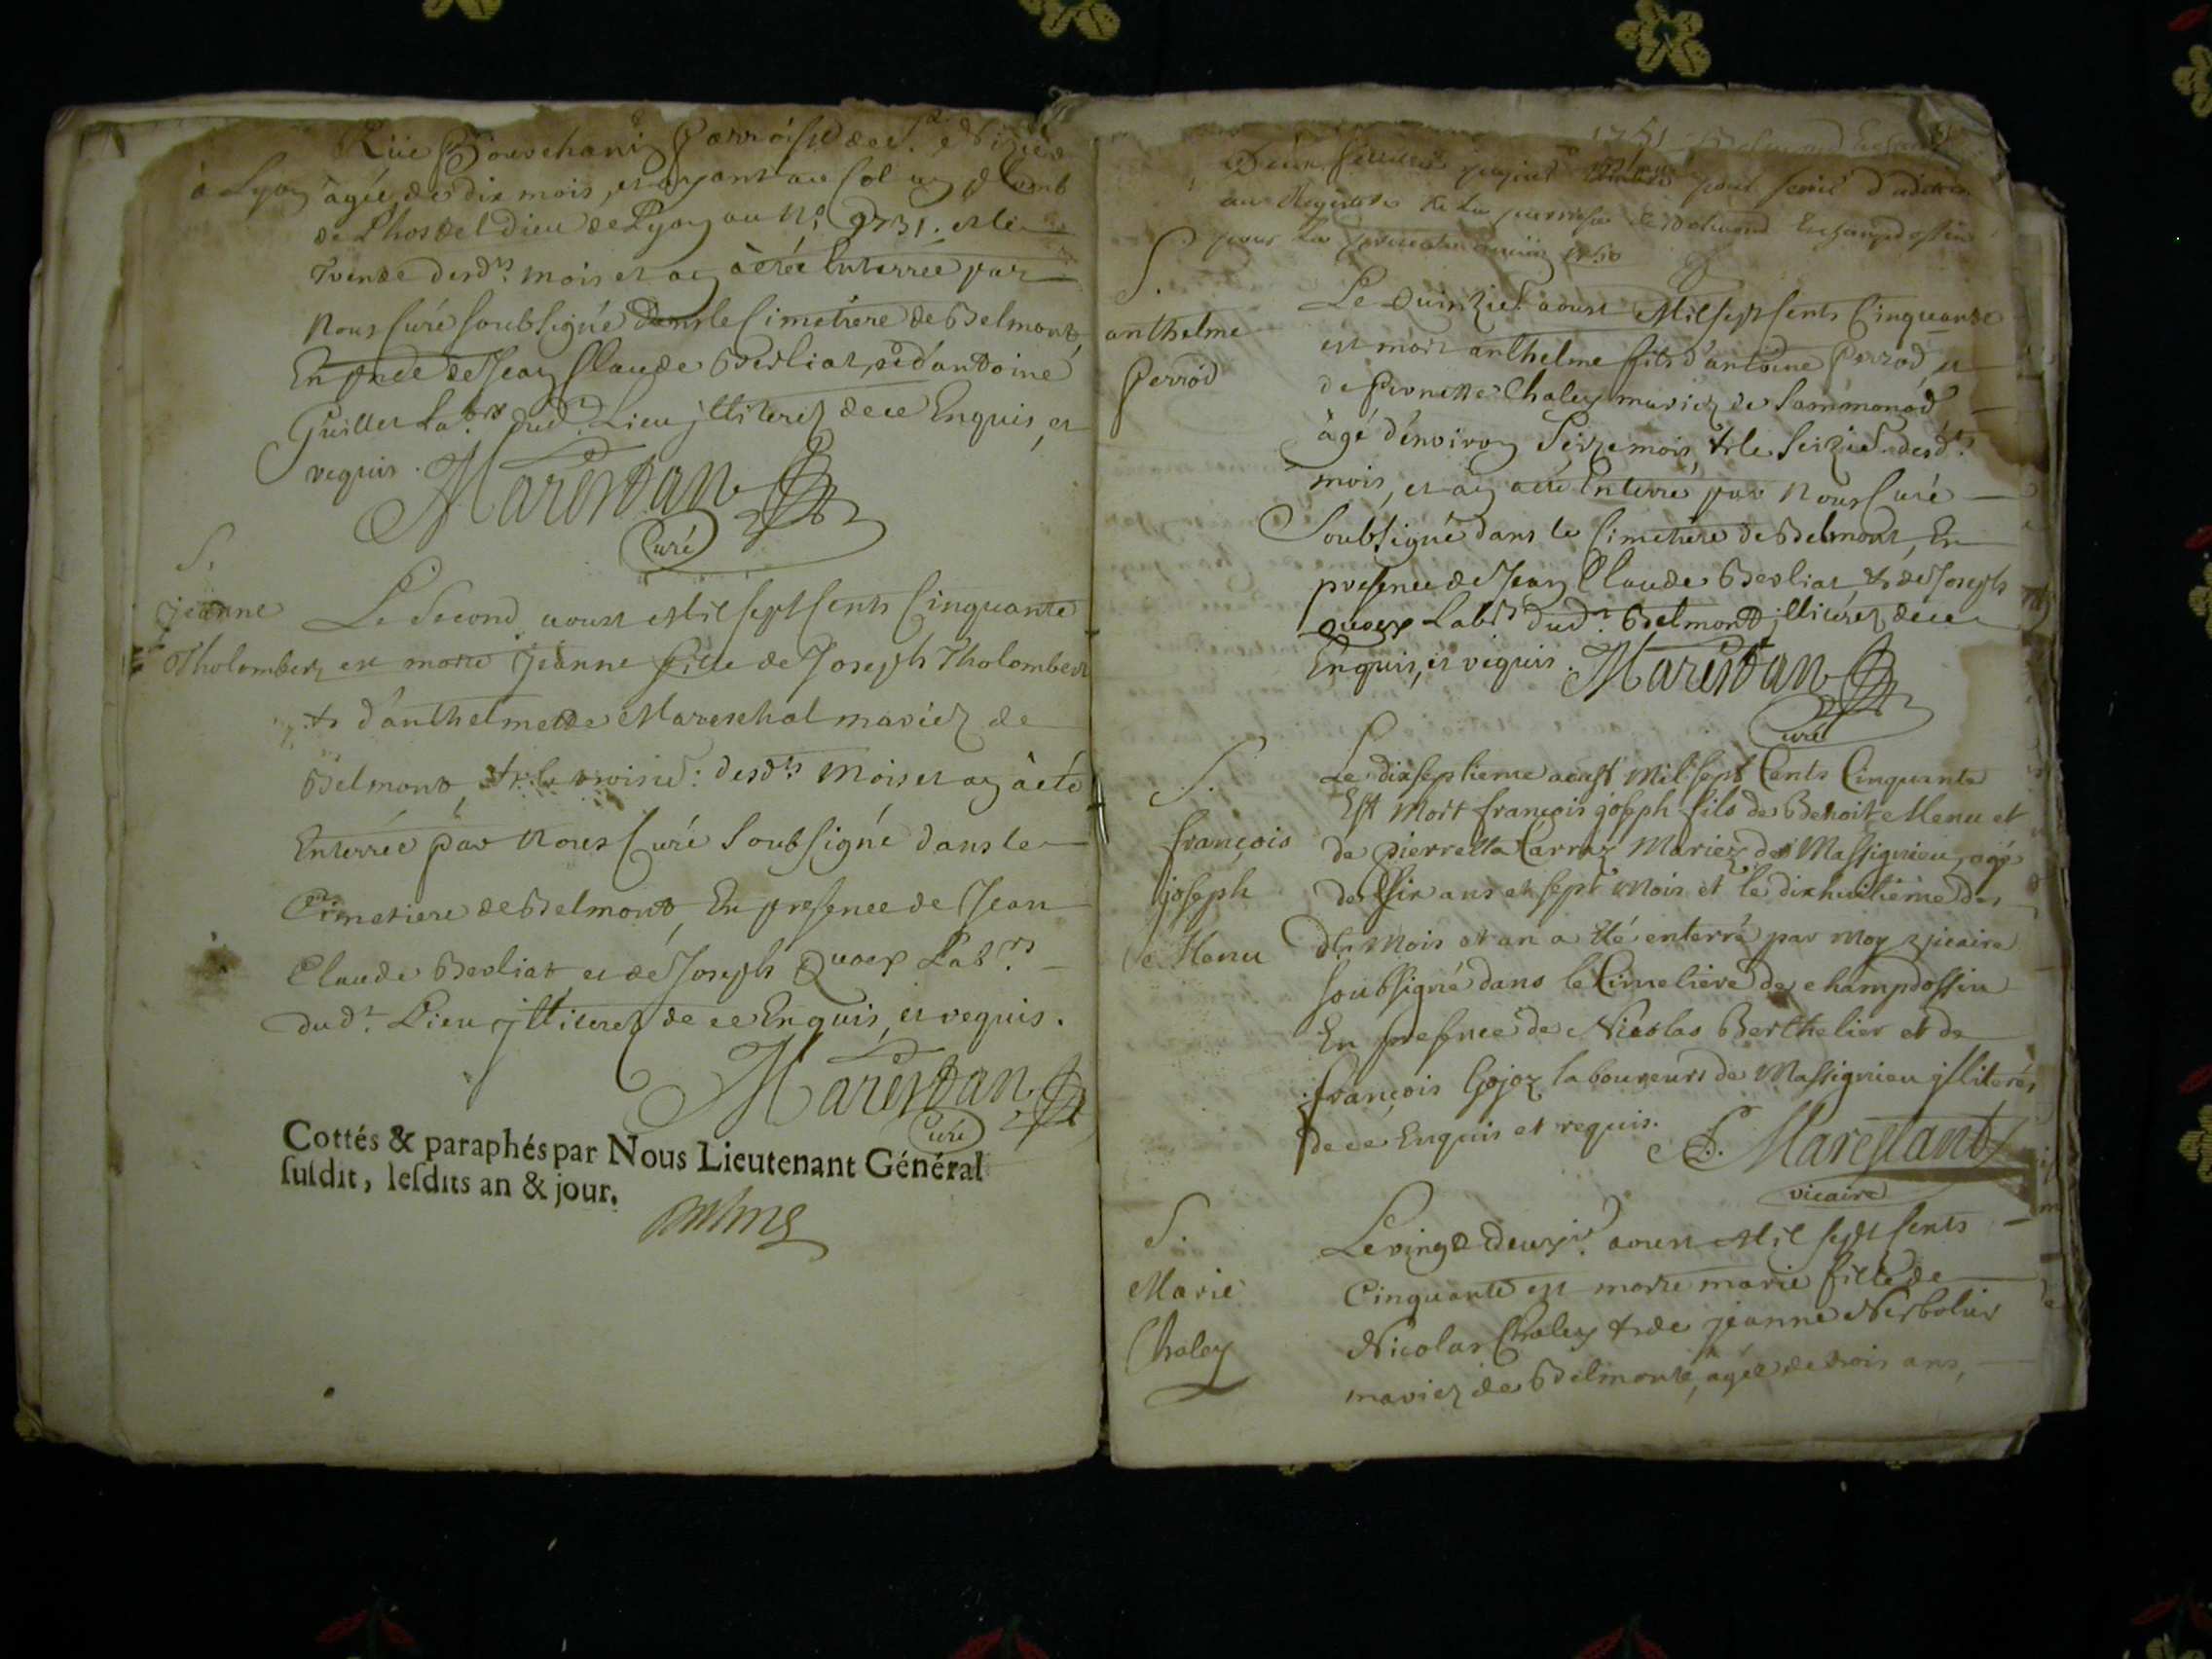 Rüe Bouschanin Parroisse de St. Nizier
à Lyon âgée de dix mois, et ayant au Col un plomb
de Lhostel Dieu de Lyon au No. 9731. et le
trente desdts. mois et an à étée Enterrée par
Nous Curé soubsigné dans le Cimetiere de Belmont,
En pnce de Jean Claude Berliat, et d'antoine
Guillet Labrs. dud. Lieu jlliterez de ce Enquis, et
requis. Marestan
Curé
S.
jeanne
Tholombert
Le Second aoust Mil sept Cents Cinquante
est morte jeanne fille de Joseph Tholombert
et d'anthelmede Mareschal mariez de
Belmont, et le troisie: desdts. Mois et an à été
Enterrée par Nous Curé Soubsigné dans le
Cimetiere de Belmont, En presence de Jean
Claude Berliat et de Joseph Quoex Labrs.
dudt. Lieu jlliterez de ce Enquis, et requis.
Marestan
Curé
Cottés & paraphés par Nous Lieutenant Général
susdit, lesdits an & jour.
1751 Belmond
pour servir d'addition
au Registre de la parroisse de Belmond En champdossin
pour la année 1750
S.
anthelme
Perrod
Le Quinzie. aoust Mil sept Cents Cinquante
est mort anthelme fils d'antoine Perrod, et
de Pernette Chaley mariez de Sammonod
âgé d'environ Seize mois, et le Seizie. desdt.
mois, et an a été Enterré par Nous Curé
Soubsigné dans le Cimetiere de Belmont, En
presence de Jean Claude Berliat et de Joseph
Quoex Labrs. dudt. Belmont jlliterez de ce
Enquis, et requis. Marestan
Curé
S.
françois
joseph
Menu
Le dixseptieme aoust Mil sept Cents Cinquante
Est Mort françois joseph fils de Benoit Menu et
de pierrette Carraz Mariez de Massignieu, agé
de six ans et sept Mois et le dixhuitieme des
dts. Mois et an a été enterré par Moy vicaire
soubsigné dans le Cimetiere de champdossin
En presence de Nicolas Berthelier et de
françois Gojoz laboureurs de Massignieu jlliterés
de ce Enquis et requis. Marestant
vicaire
S.
Marie
Chaley
Le vingt deuxie. aoust Mil sept Cents
Cinquante est morte marie fille de
Nicolas Chaley et de jeanne
mariez de Belmont, agée de trois ans,